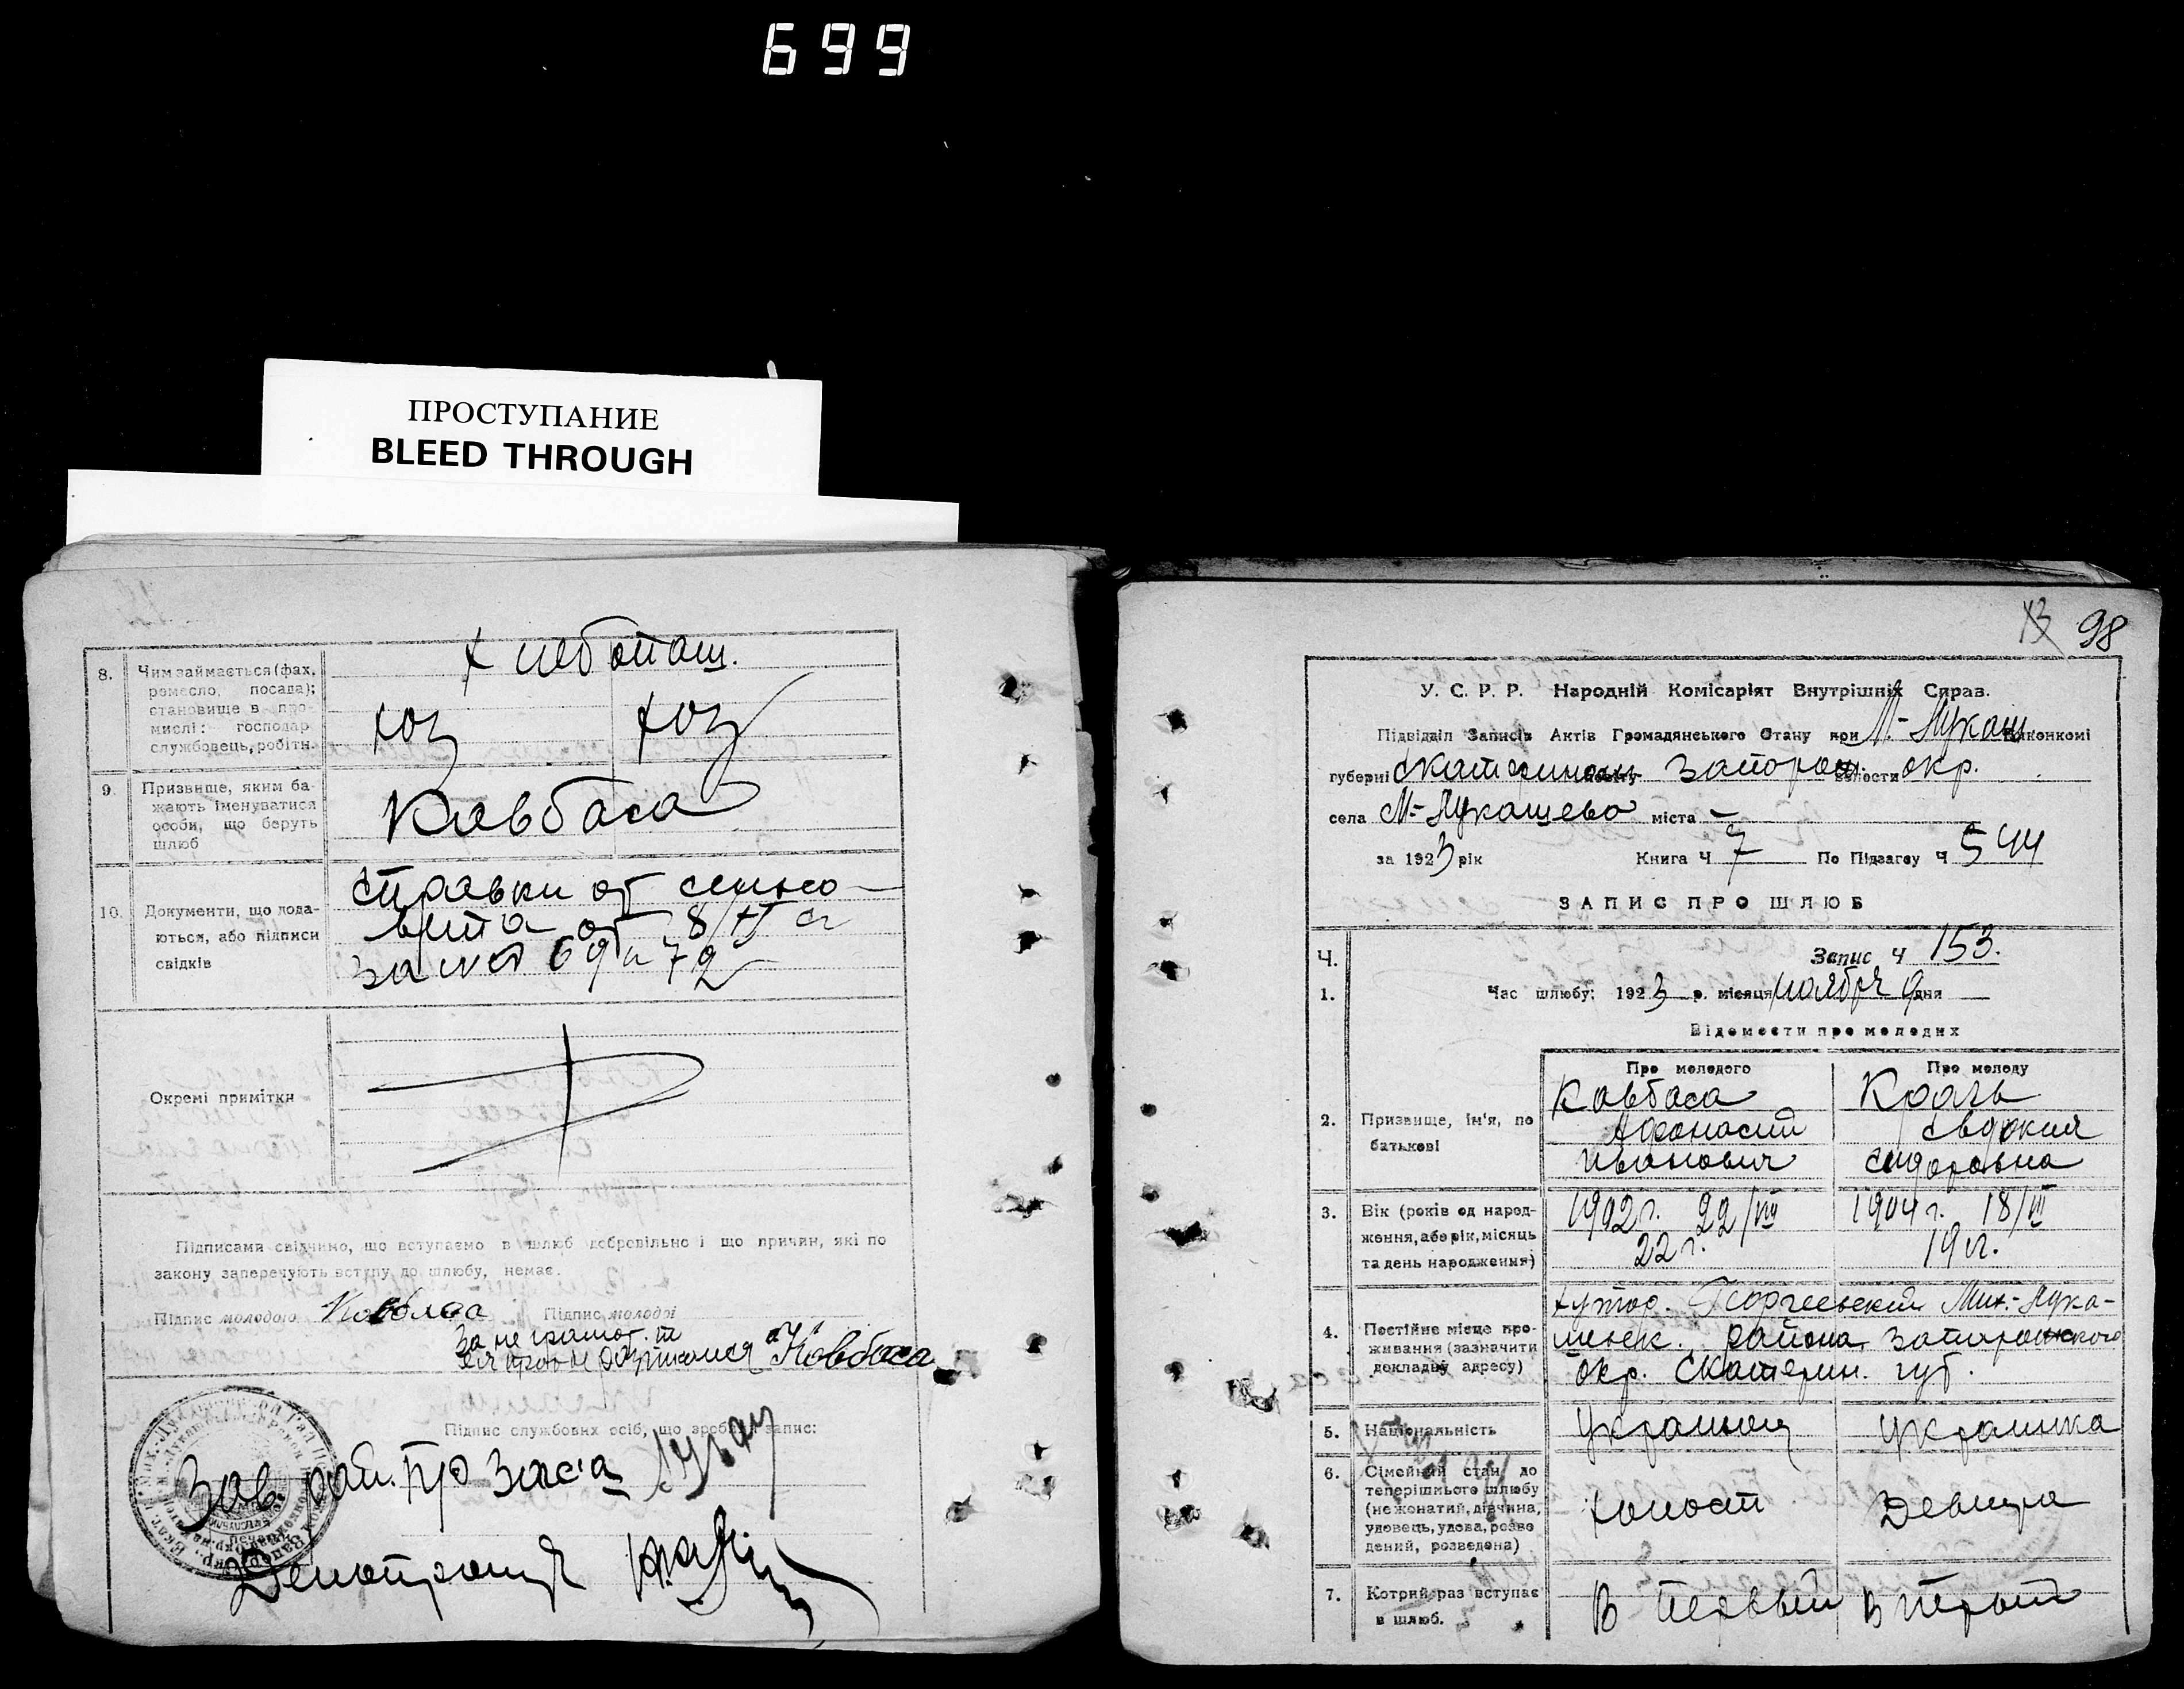 699
ПРОСТУПАНИЕ
BLEED THROUGH
8. Чим займається (фах,
ремесло, посада);
становище в про-
мислі: господар
службовець, робітн.
Хлебопаш.
хоз хоз
9. Призвище, яким ба-
жають іменуватися
особи, що беруть
шлюб
Ковбаса
10. Документи, що дода-
ються, або підписи
свідків
справки от сельсо-
вета от 8/XI
за № 69 и 72
Окремі примітки
Підписами свідчимо, що вступаємо в шлюб добровільно і що причин, які по
закону заперечують вступу до шлюбу, немає.
Підпис молодого Ковбаса Підпис молодої
За неграмот.
Ковбаса
Підпис службових осіб, що зробили запис:
Зав. рай. Пр Загса
Делопроизв
13 98
У. С. Р. Р. Народній Комісаріят Внутрішніх Справ.
Підвідділ Записів Актів Громадянського Стану при М-Лукаш Виконкомі
губерні Екатеринос повіту Запорож. волости окр.
села М-Лукашево міста –
за 1923 рік Книга Ч 7 По Підзагсу Ч 544
ЗАПИС ПРО ШЛЮБ
Ч. Запис Ч 153.
1. Час шлюбу: 1923 р. місяця ноября 9 дня
Відомости про молодих
Про молодого Про молоду
2. Призвище, ім'я, по
батькові
Ковбаса Кроль
Афонасий Евдокия
Иванович Сидоровна
3. Вік (років од народ-
ження, або рік, місяць
та день народження)
1902 г. 22/VIII 1904 г. 18/III
22 г. 19 л.
4. Постійне місце про-
живання (зазначити
докладну адресу)
хутор. Георгеевский Мих.-Лука-
шевск. района, Запорожского
окр. Екатерин. губ.
5. Національність Украинец Украинка
6. Сімейний стан до
теперішнього шлюбу
(нежонатий, дівчина,
удовець, удова, розве
дений, розведена)
холост Девица
7. Котрий раз вступає
в шлюб.
В первый В первый